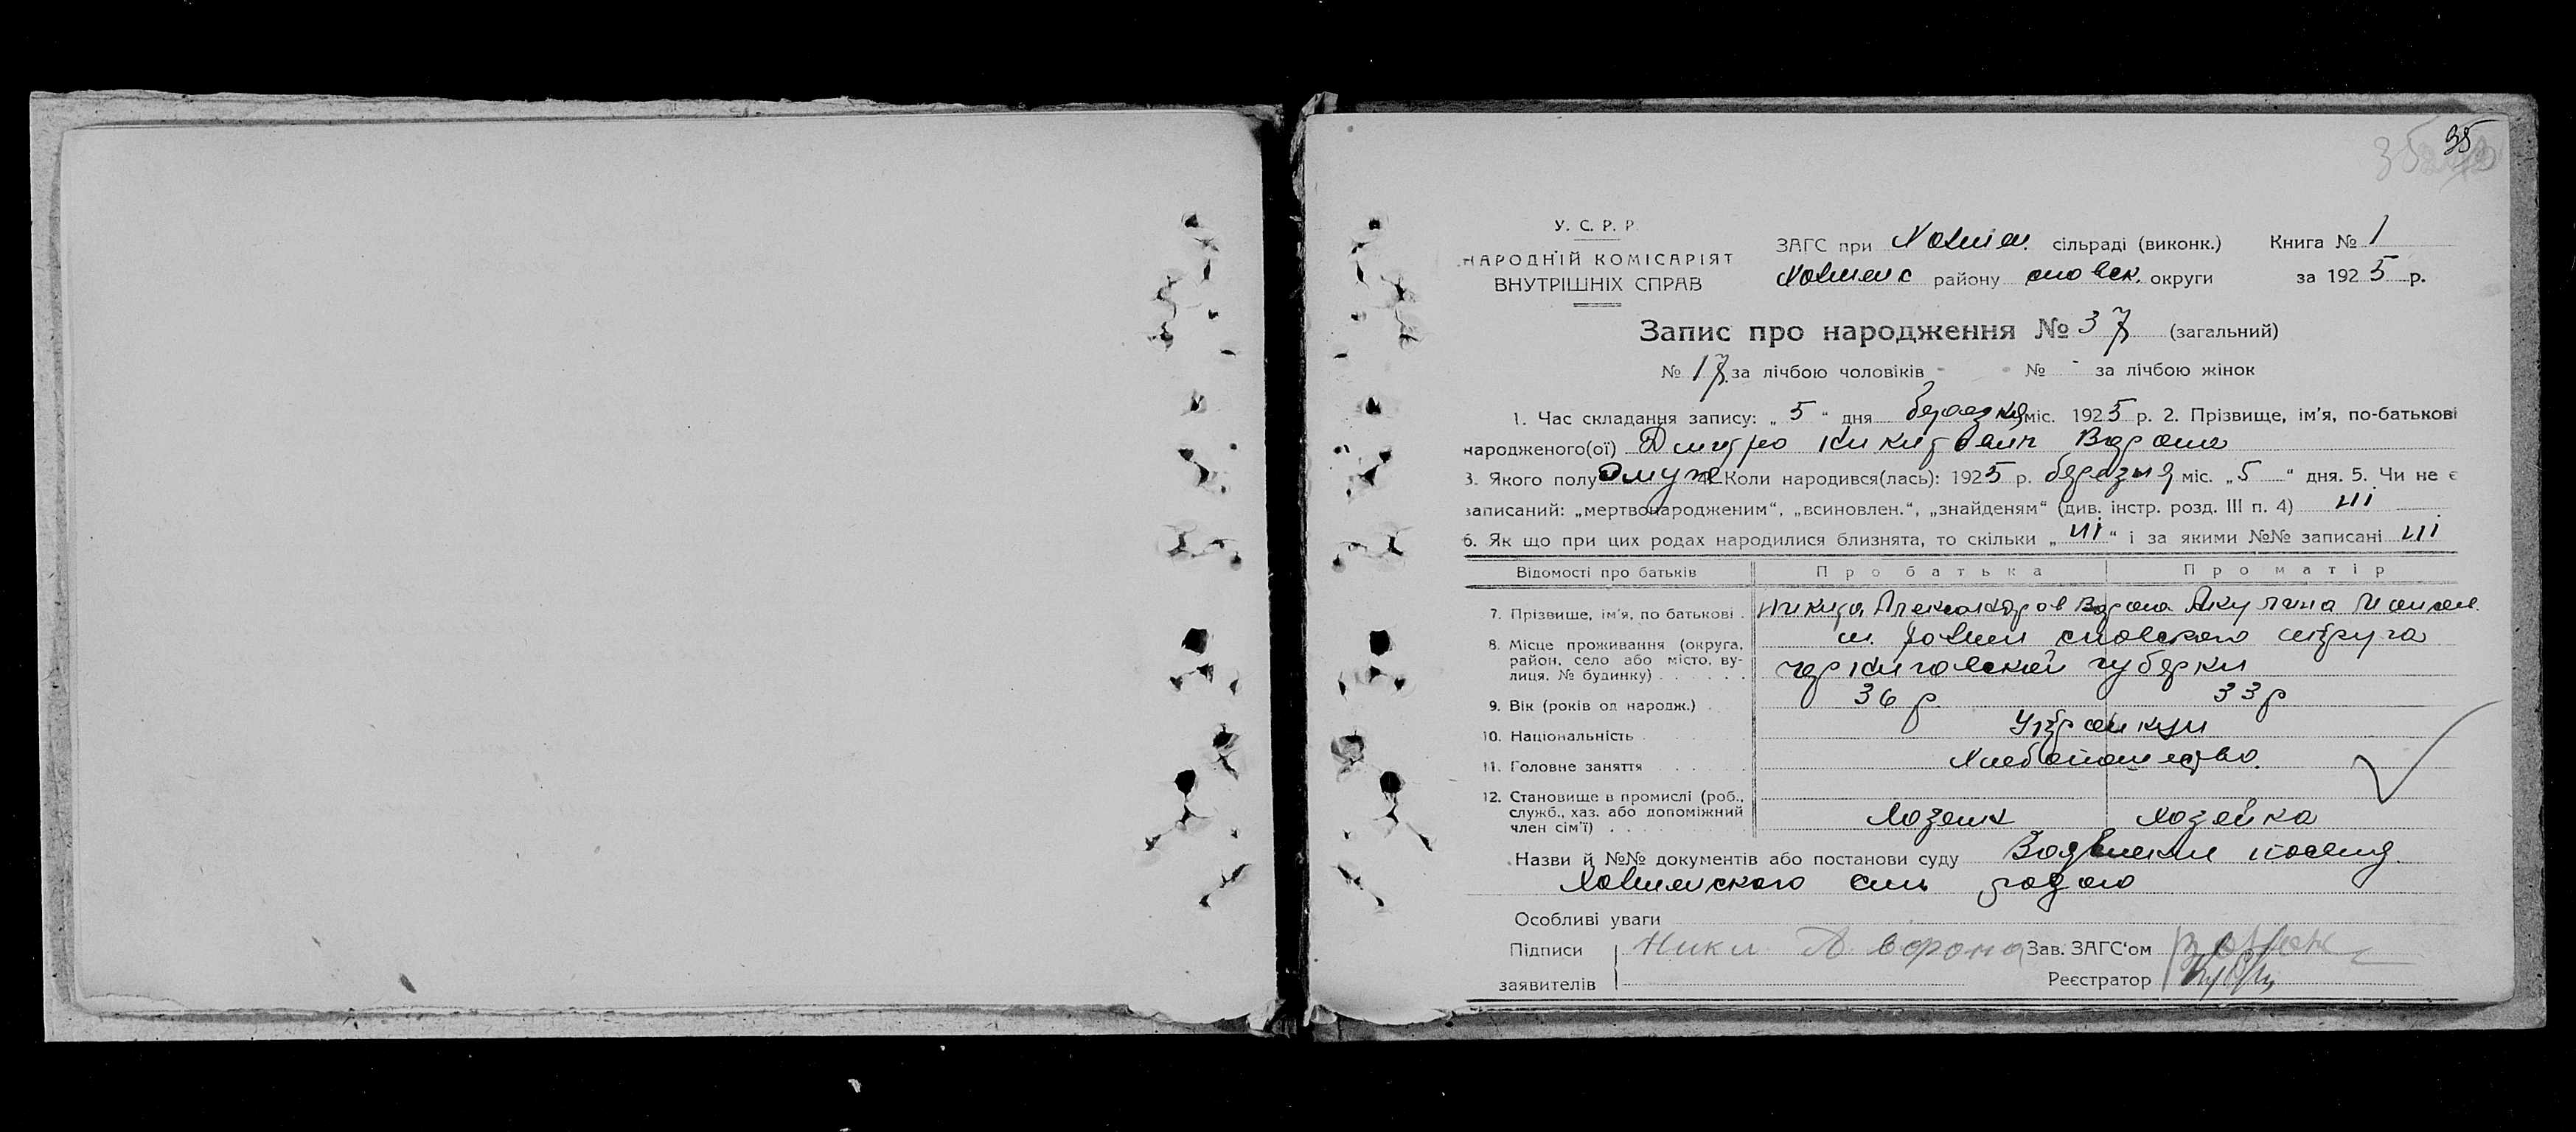 35
35
У. С. Р. Р.
НАРОДНІЙ КОМІСАРІЯТ
ВНУТРІШНІХ СПРАВ
ЗАГС при Холмен. сільраді (виконк.) Книга № 1
Холменс району сновск. округи за 1925 р.
Запис про народження № 37 (загальний)
№ 17 за лічбою чоловіків № - за лічбою жінок
1. Час складання запису: „5“ дня березня міс. 1925 р. 2. Прізвище, ім'я, по-батькові
народженого(ої) Дмитро Никитович Ворона
3. Якого полу муж 4. Коли народився(лась): 1925 р. березня міс. „5“ дня. 5. Чи не є
записаний: „мертвонародженим“, „всиновлен.“, „знайденям“ (див. інстр. розд. III п. 4) ні
6. Як що при цих родах народилися близнята, то скільки „ні“ і за якими №№ записані ні
Відомості про батьків Про батька Про матір
7. Прізвище, ім'я, по батькові . Никита Александров Ворона Акулина
8. Місце проживання (округа, район, село або місто, вулиця, № будинку) . . . . . . м. Холмы сновского округа
черниговской губерни
9. Вік (років од народж.) . 36 р. 33 р
10. Національність . Украинцы
11. Головне заняття . . . . Хлебопашество.
12. Становище в промислі (роб., служб., хаз. або допоміжний член сім'ї) . . . . Хозяин хозяйка
Назви й №№ документів або постанови суду посвид.
Холменского сель
Особливі уваги
Підписи Ники А ворона Зав. ЗАГС'ом
заявителів Реєстратор